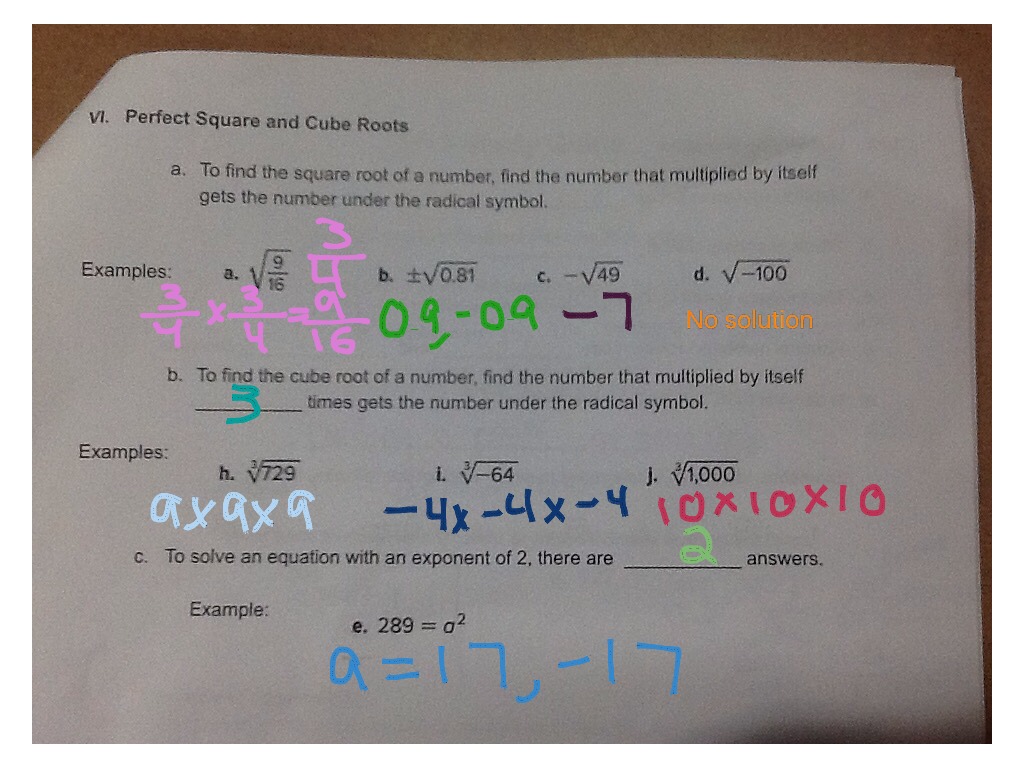 VI. Perfect Square and Cube Roots
a. To find the square root of a number, find the number that multiplied by itself
gets the number under the radical symbol.
3/4
Examples: a. √(9/16) b. ±√0.81 c. −√49 d. √−100
3/4 × 3/4 = 9/16 0.9, -0.9 -7 No solution
b. To find the cube root of a number, find the number that multiplied by itself
3 times gets the number under the radical symbol.
Examples:
h. ∛729 i. ∛−64 j. ∛1,000
9x9x9 -4x-4x-4 10x10x10
c. To solve an equation with an exponent of 2, there are 2 answers.
Example:
e. 289 = a²
a=17, -17